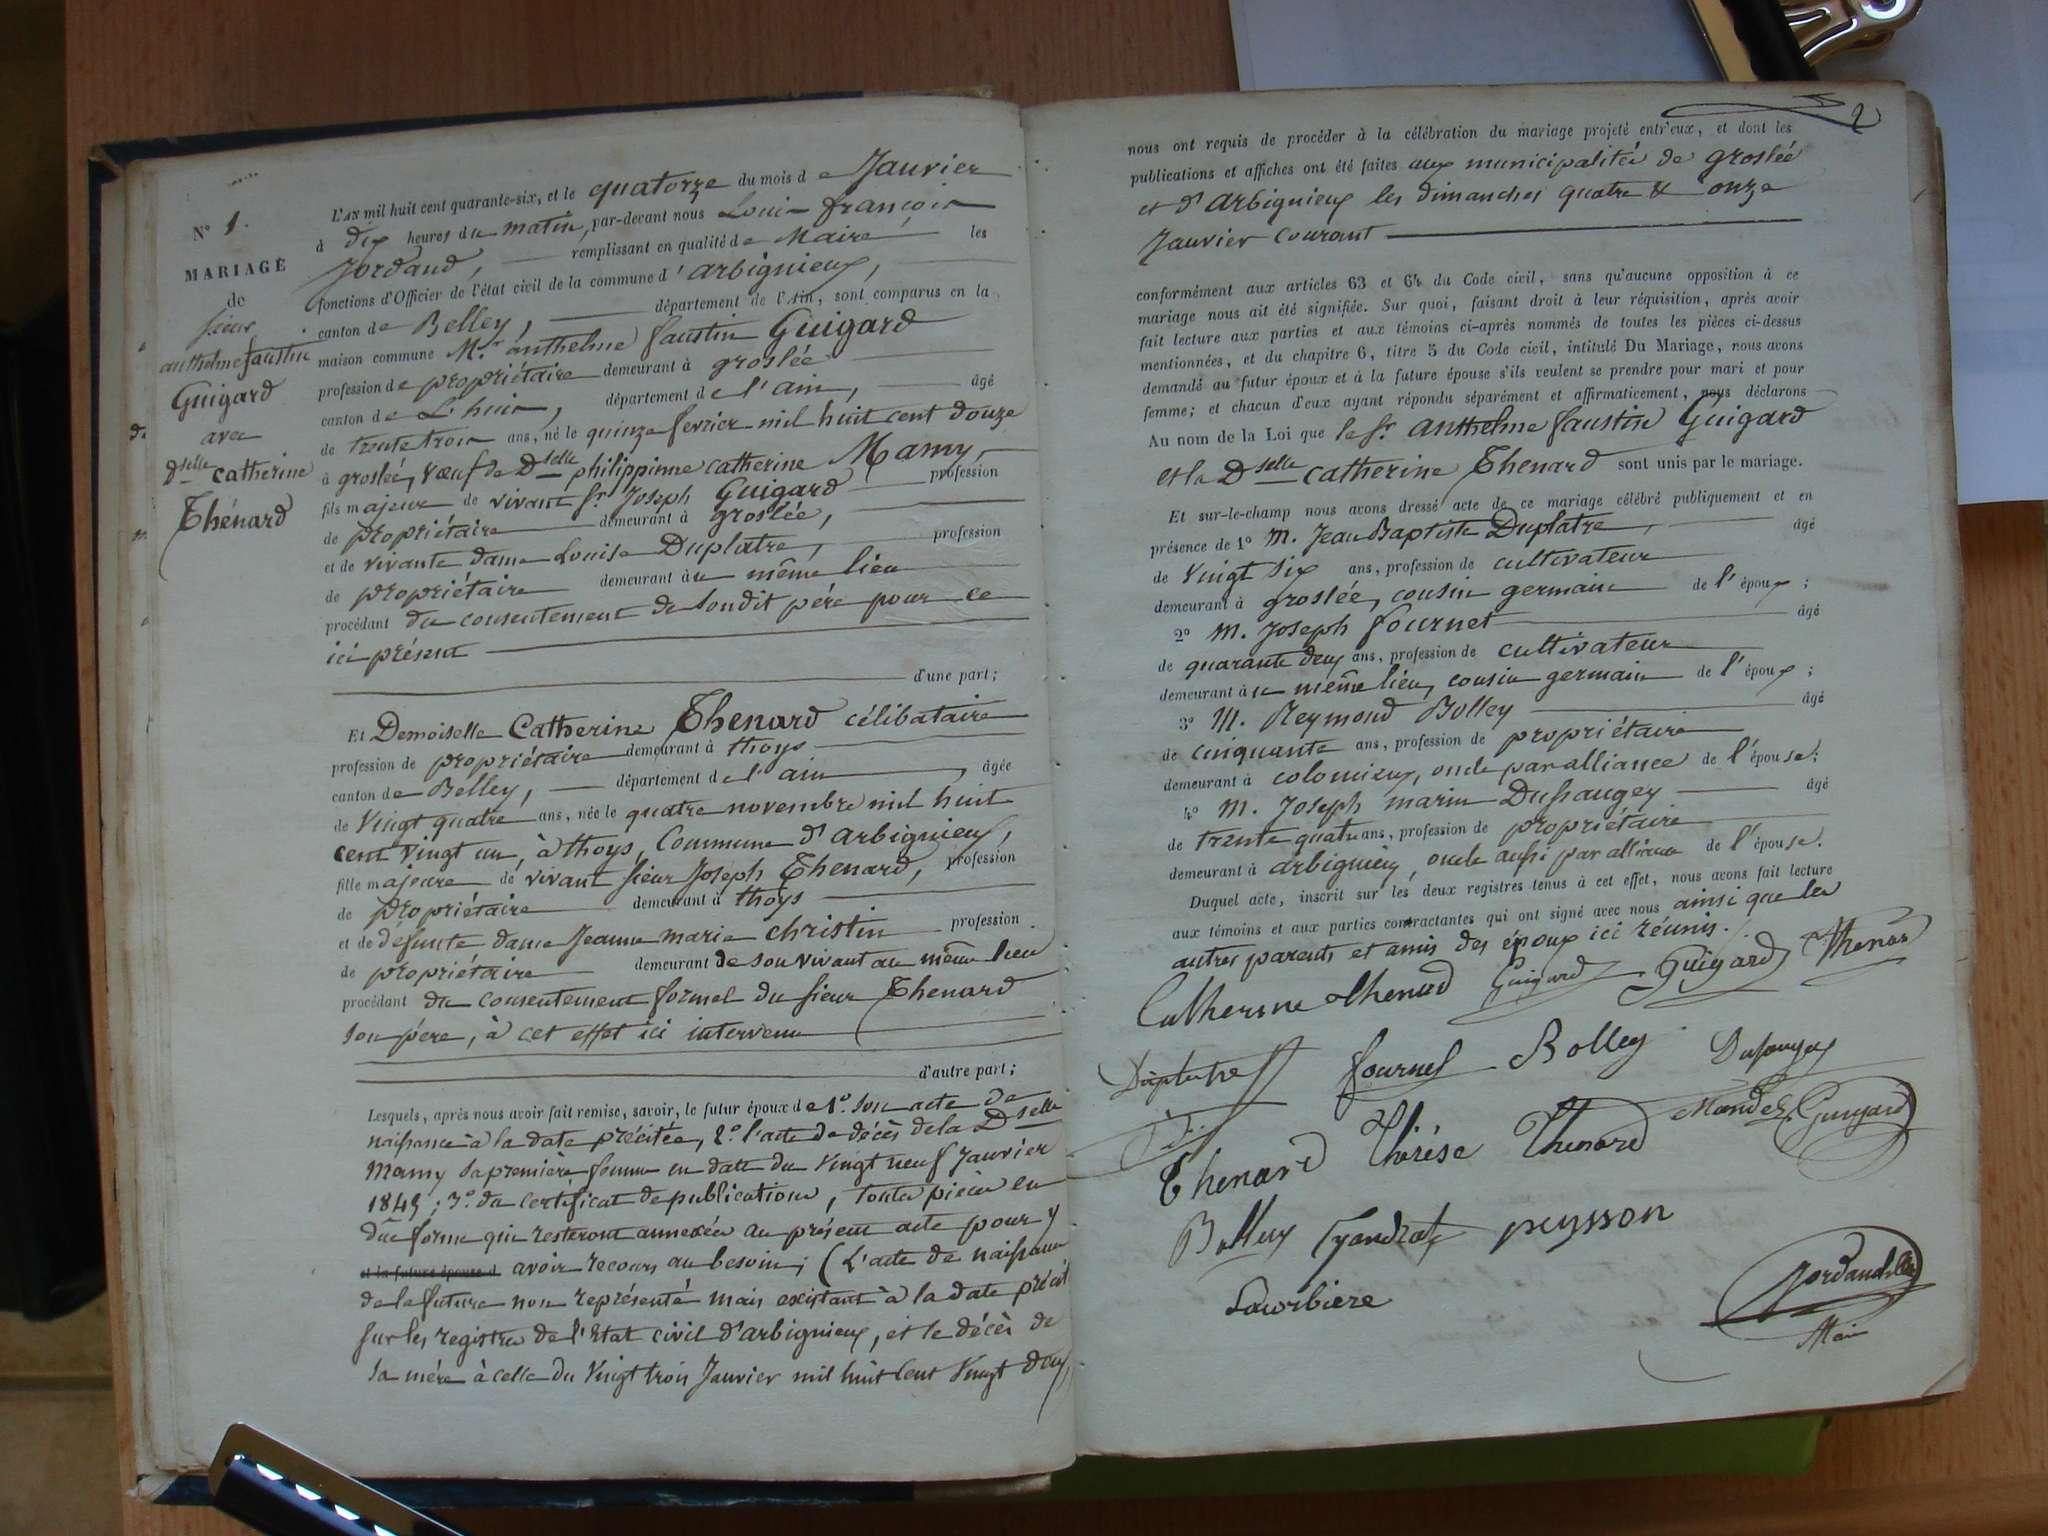 N° 1.
MARIAGE
de
sieur
anthelme faustin
Guigard
avec
Dselle catherine
Thénard
L'AN mil huit cent quarante-six, et le quatorze du mois de Janvier
à dix heures du matin, par-devant nous Louis françois
Jordand, remplissant en qualité de Maire les
fonctions d'Officier de l'état civil de la commune d'arbignieux,
canton de Belley, département de l'Ain, sont comparus en la
maison commune Mr. anthelme faustin Guigard
profession de propriétaire demeurant à groslée
canton de L'huis, département de l'ain, âgé
de trente trois ans, né le quinze fevrier mil huit cent douze
à groslée, vœuf de Dselle philippinne catherine Mamy,
fils majeur de vivant sr. Joseph Guigard profession
de propriétaire demeurant à groslée,
et de vivante dame Louise Duplatre, profession
de propriétaire demeurant au même lieu
procédant du consentement de sondit père pour ce
ici présent
d'une part;
Et Demoiselle Catherine Thenard célibataire
profession de propriétaire demeurant à thoys
canton de Belley, département de l'ain âgée
de vingt quatre ans, née le quatre novembre mil huit
cent vingt un, à thoys, Commune d'arbignieux,
fille majeure de vivant sieur Joseph Thenard, profession
de propriétaire demeurant à thoys
et de défunte dame Jeanne marie christin profession
de propriétaire demeurant de son vivant au même lieu
procédant du consentement formel du sieur Thenard
son père, à cet effet ici intervenu
d'autre part;
Lesquels, après nous avoir fait remise, savoir, le futur époux de 1°. son acte de
naissance à la date précitée, 2°. l'acte de décès de la Dselle
Mamy sa première femme en date du vingt neuf Janvier
1845; 3°. du certificat de publications, toutes pièces en
due forme qui resteront annexées au présent acte pour y
et la future épouse d avoir recours au besoin; (L'acte de naissance
de la future non représenté mais existant à la date précité
sur les registres de l'Etat civil d'arbignieux, et le décès de
sa mère à celle du vingt trois Janvier mil huit cent vingt deux
2
nous ont requis de procéder à la célébration du mariage projeté entr'eux, et dont les
publications et affiches ont été faites aux municipalités de groslée
et d'arbignieux les dimanches quatre & onze
Janvier courant
conformément aux articles 63 et 64 du Code civil, sans qu'aucune opposition à ce
mariage nous ait été signifiée. Sur quoi, faisant droit à leur réquisition, après avoir
fait lecture aux parties et aux témoins ci-après nommés de toutes les pièces ci-dessus
mentionnées, et du chapitre 6, titre 5 du Code civil, intitulé Du Mariage, nous avons
demandé au futur époux et à la future épouse s'ils veulent se prendre pour mari et pour
femme; et chacun d'eux ayant répondu séparément et affirmativement, nous déclarons
Au nom de la Loi que le sr. anthelme faustin Guigard
et la Dselle catherine Thenard sont unis par le mariage.
Et sur-le-champ nous avons dressé acte de ce mariage célébré publiquement et en
présence de 1° M. Jean Baptiste Duplatre, âgé
de vingt six ans, profession de cultivateur
demeurant à groslée, cousin germain de l'époux;
2° M. Joseph fournet âgé
de quarante deux ans, profession de cultivateur
demeurant au même lieu, cousin germain de l'époux;
3° M. Reymond Bolley âgé
de cinquante ans, profession de propriétaire
demeurant à colomieux, oncle par alliance de l'épouse;
4° M. Joseph marin Dussaugey âgé
de trente quatre ans, profession de propriétaire
demeurant à arbignieux, oncle aussi par alliance de l'épouse.
Duquel acte, inscrit sur les deux registres tenus à cet effet, nous avons fait lecture
aux témoins et aux parties contractantes qui ont signé avec nous ainsi que les
autres parents et amis des époux ici réunis.
Catherine thenard Guigard Guigard Thenard
Duplatre fournet Bolley Dussaugey
Thenard Thérèse Thenard Guigard
Bolley peysson
Lavorbiere
Jordand
Maire